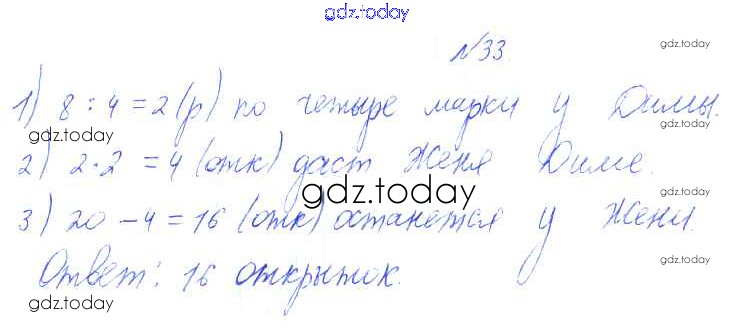 gdz.today
№33.
gdz.today
1) 8 : 4 = 2 (р) по четыре марки у Димы.
gdz.today
gdz.today
2) 2 · 2 = 4 (отк) даст Женя Диме.
gdz.today
gdz.today
gdz.today
3) 20 – 4 = 16 (отк) останется у Жени.
gdz.today
Ответ: 16 открыток.
gdz.today
gdz.today